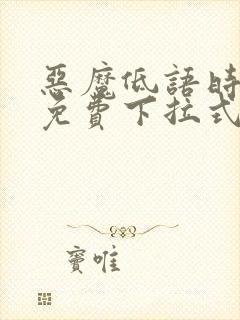 惡魔低語時
免費下拉式
竇唯